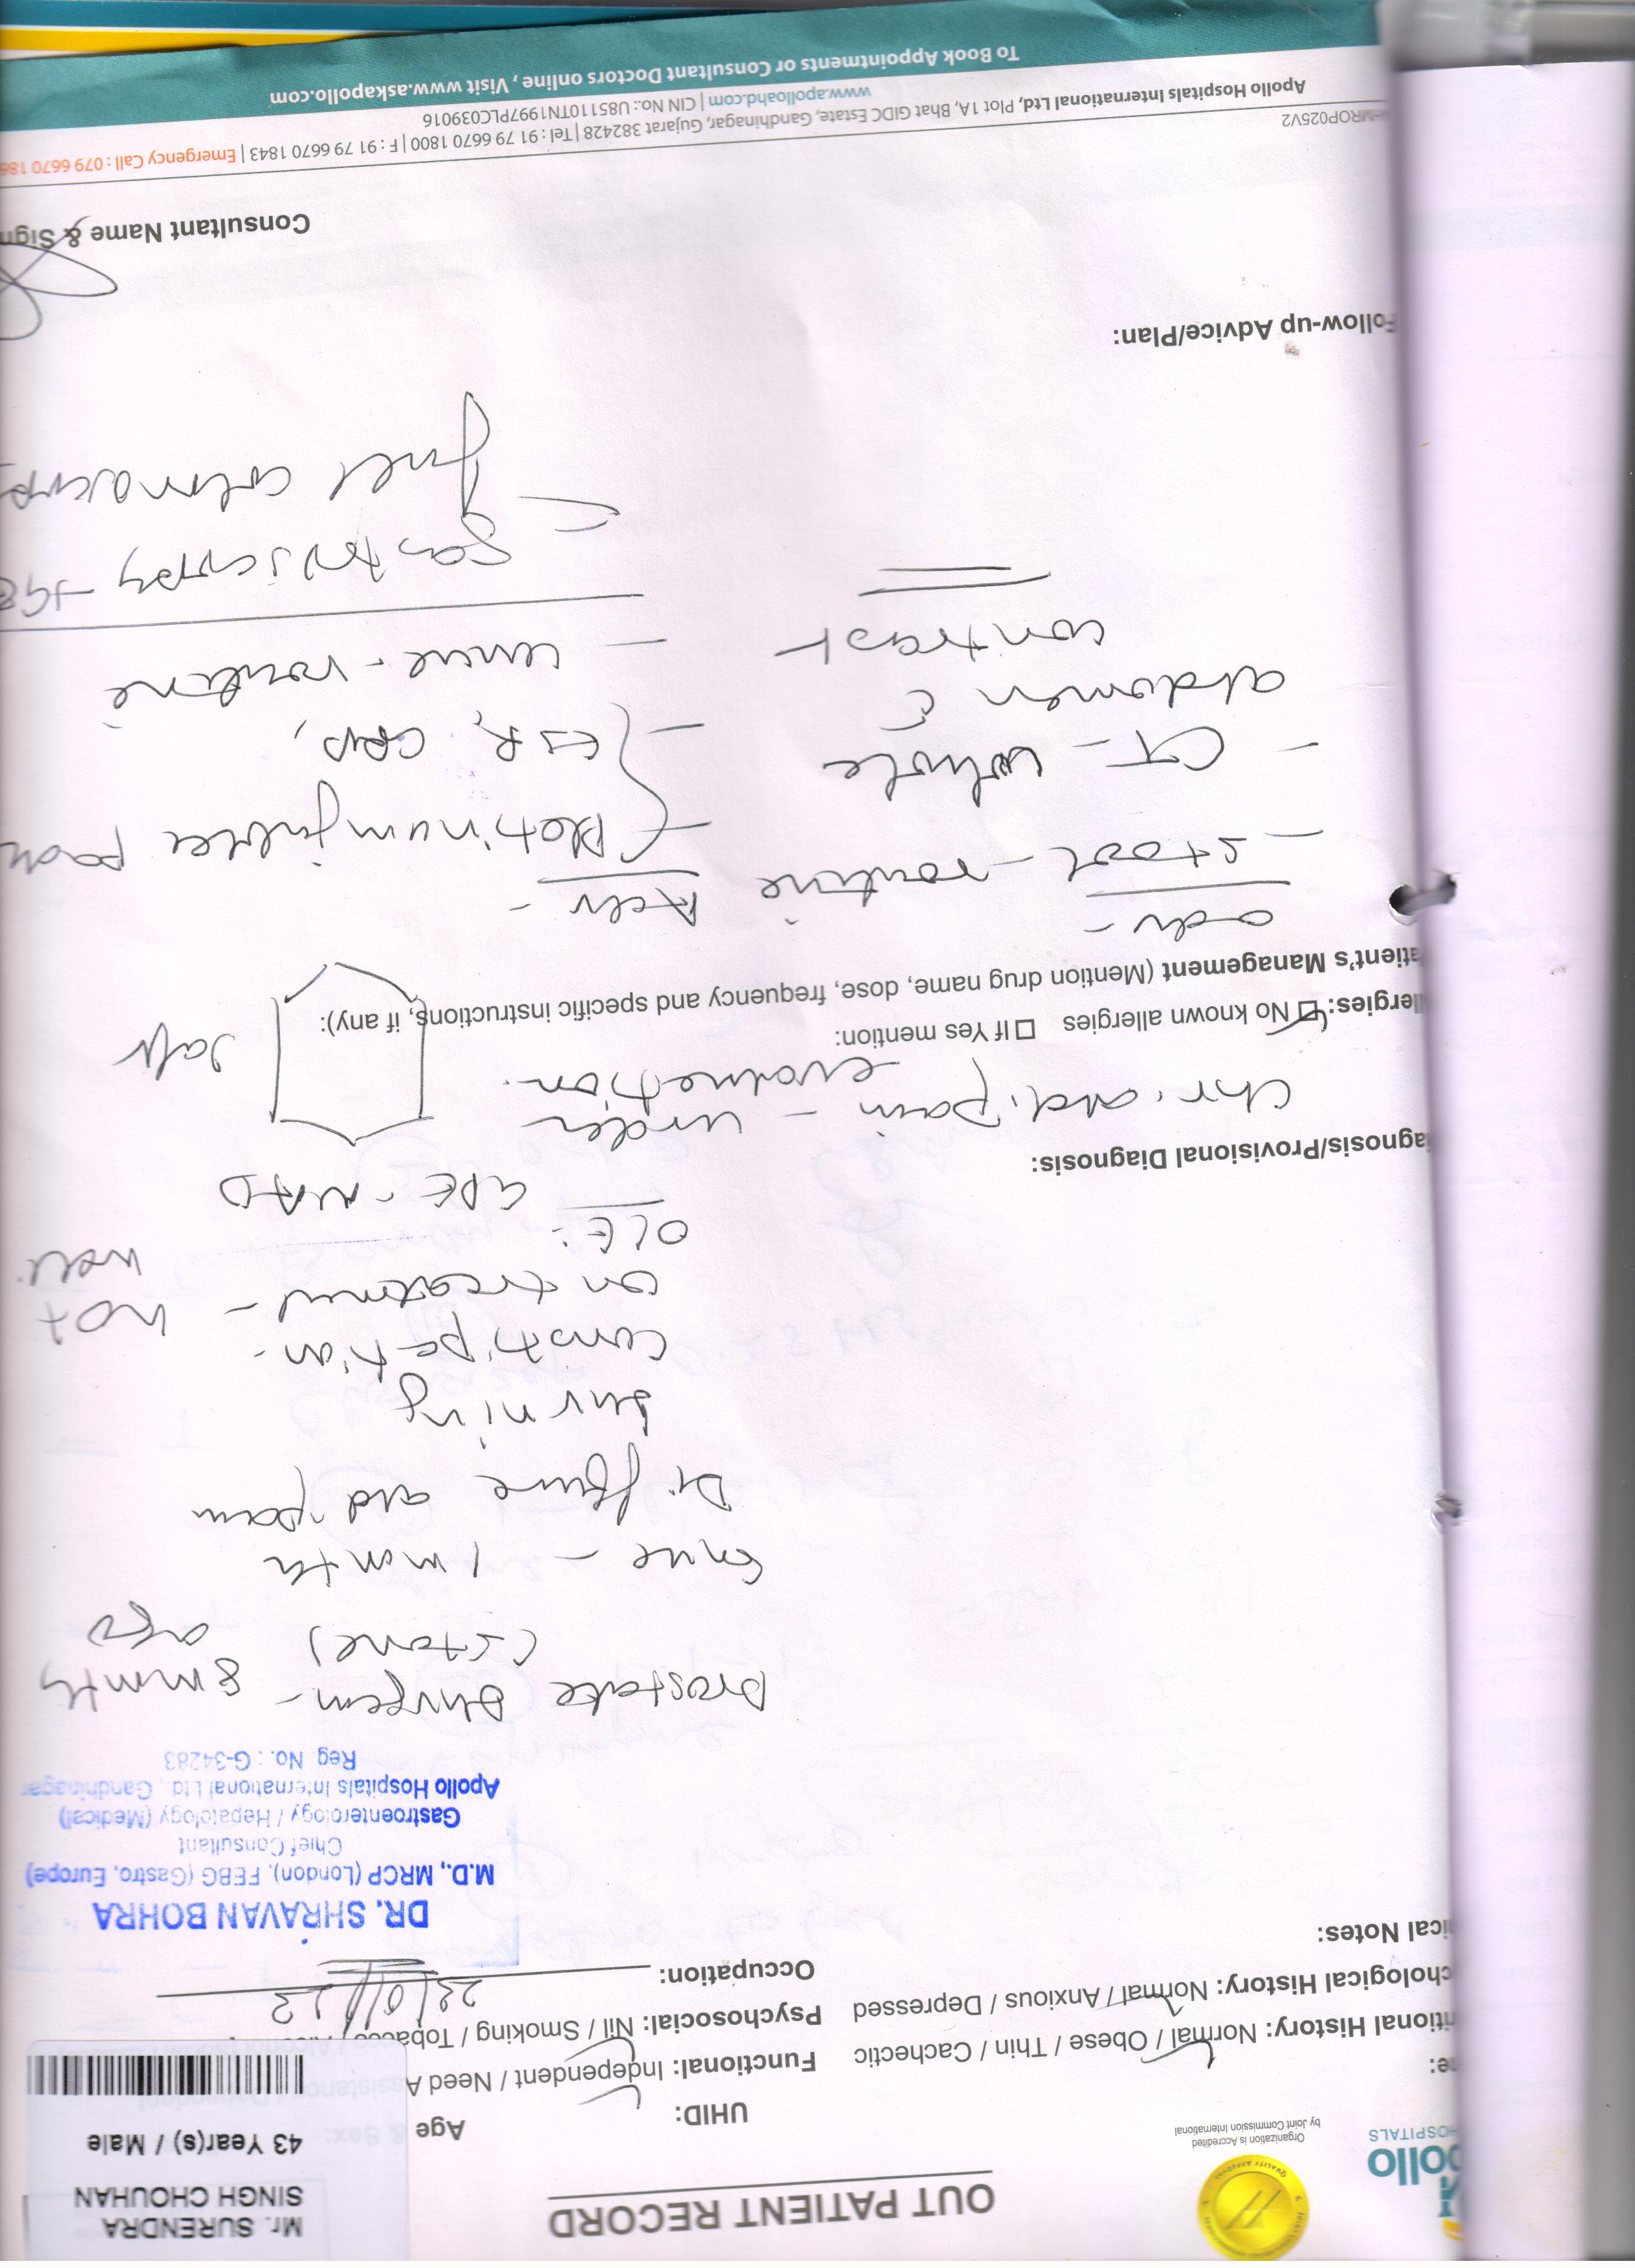 OUT PATIENT RECORD
Organization is Accredited
by Joint Commission International
Mr. SURENDRA
SINGH CHOUHAN
43 Year(s) / Male
UHID:
Age & Sex:
Functional: Independent / Need Assistance
Nutritional History: Normal / Obese / Thin / Cachectic
Psychosocial: Nil / Smoking / Tobacco
Psychological History: Normal / Anxious / Depressed
Occupation:
Clinical Notes:
DR. SHRAVAN BOHRA
M.D., MRCP (London), FEBG (Gastro, Europe)
Chief Consultant
Gastroenterology / Hepatology (Medical)
Apollo Hospitals International Ltd., Gandhinagar
Reg. No.: G-34283
Prostate surgery - 8 mnths
(stone) ago
Since - 1 month
Diffuse abd pain
burning
constipation -
on treatment - not
well.
O/E:
GPE - NAD
Diagnosis/Provisional Diagnosis:
Chr. abd. pain - under
evaluation.
soft
Allergies: No known allergies If Yes mention:
Patient's Management (Mention drug name, dose, frequency and specific instructions, if any):
adv -
- stool - routine
- CT - whole
abdomen c̄
contrast
Adv -
- Platinum fuller pack
- ESR, CRP,
- urine - routine
gastroscopy
- full colonoscopy
Follow-up Advice/Plan:
Consultant Name & Sign
MROP025V2
Apollo Hospitals International Ltd, Plot 1A, Bhat GIDC Estate, Gandhinagar, Gujarat 382428 | Tel : 91 79 6670 1800 | F : 91 79 6670 1843 | Emergency Call : 079 6670 186
www.apolloahd.com | CIN No.: U85110TN1997PLC039016
To Book Appointments or Consultant Doctors online , Visit www.askapollo.com